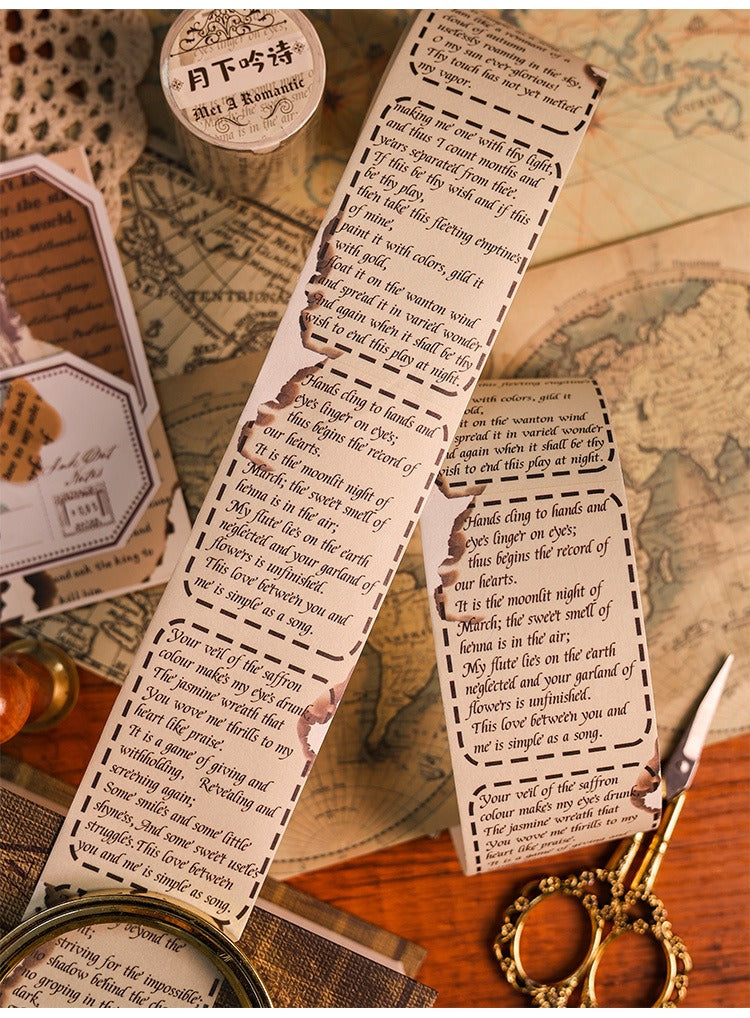 cloud of autumn
uselessly roaming in the sky,
O my sun ever-glorious!
Thy touch has not yet melted
my vapor,
making me one with thy light,
and thus I count months and
years separated from thee.
If this be thy wish and if this
be thy play,
then take this fleeting emptines
of mine,
paint it with colors, gild it
with gold,
float it on the wanton wind
and spread it in varied wonder
And again when it shall be thy
wish to end this play at night.
Hands cling to hands and
eyes linger on eyes;
thus begins the record of
our hearts.
It is the moonlit night of
March; the sweet smell of
henna is in the air;
My flute lies on the earth
neglected and your garland of
flowers is unfinished.
This love between you and
me is simple as a song.
Your veil of the saffron
colour makes my eyes drunk
The jasmine wreath that
You wove me thrills to my
heart like praise.
It is a game of giving and
withholding, Revealing and
screening again;
Some smiles and some little
shyness, And some sweet useles
struggles, This love between
you and me is simple as song.
beyond the
striving for the impossible;
no shadow behind the ch
no groping in the
dark.
月下吟诗
Met A Romantic
is in the air;
the star
the world.
TENTRIO
with colors, gild it
old,
it on the wanton wind
spread it in varied wonder
d again when it shall be thy
wish to end this play at night.
Hands cling to hands and
eyes linger on eyes;
thus begins the record of
our hearts.
It is the moonlit night of
March; the sweet smell of
henna is in the air;
My flute lies on the earth
neglected and your garland of
flowers is unfinished.
This love between you and
me is simple as a song.
Your veil of the saffron
colour makes my eyes drunk
The jasmine wreath that
You wove me thrills to my
heart like praise.
It is a game of giving and